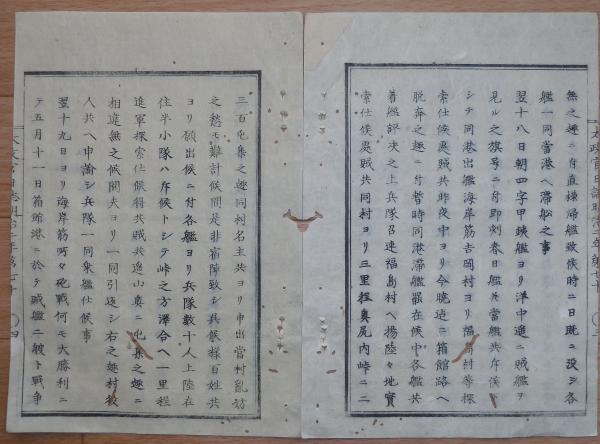 無之趣ニ付直様歸艦致候時ニ日既ニ没シ各
艦一同當港ヘ滞船之事
翌十八日朝四字甲鉄艦ヨリ洋中遙ニ賊艦ヲ
見ルノ旗号ニ付即刻春日艦共當艦共斥候ト
シテ同港出艦海岸筋吉岡村ヨリ福島村等探
索仕候處賊共昨夜中ヨリ今曉迄ニ箱館路ヘ
脱奔之趣ニ付暫時同港滞艦罷在候中各艦共
着艦評决之上兵隊召連福島村ヘ揚陸々地實
索仕候處賊共同村ヨリ三里程奥尻内峠ニ二
三百屯集之趣同村名主共ヨリ申出當村亂妨
之愁モ難計候間是非宿陣致シ呉候様百姓共
ヨリ願出候ニ付各艦ヨリ兵隊數十人上陸在
住半小隊ハ斥候トシテ峠之方澤合ヘ一里程
進軍探索仕候得共賊共遙山奥ニ屯集之趣ニ
相違無之候間夫ヨリ一同引返シ右之趣村役
人共ヘ申諭シ兵隊一同乗艦仕候事
翌十九日ヨリ海岸筋所々砲戰何モ大勝利ニ
テ五月十一日箱館港ニ於テ賊艦ニ被ト戰争